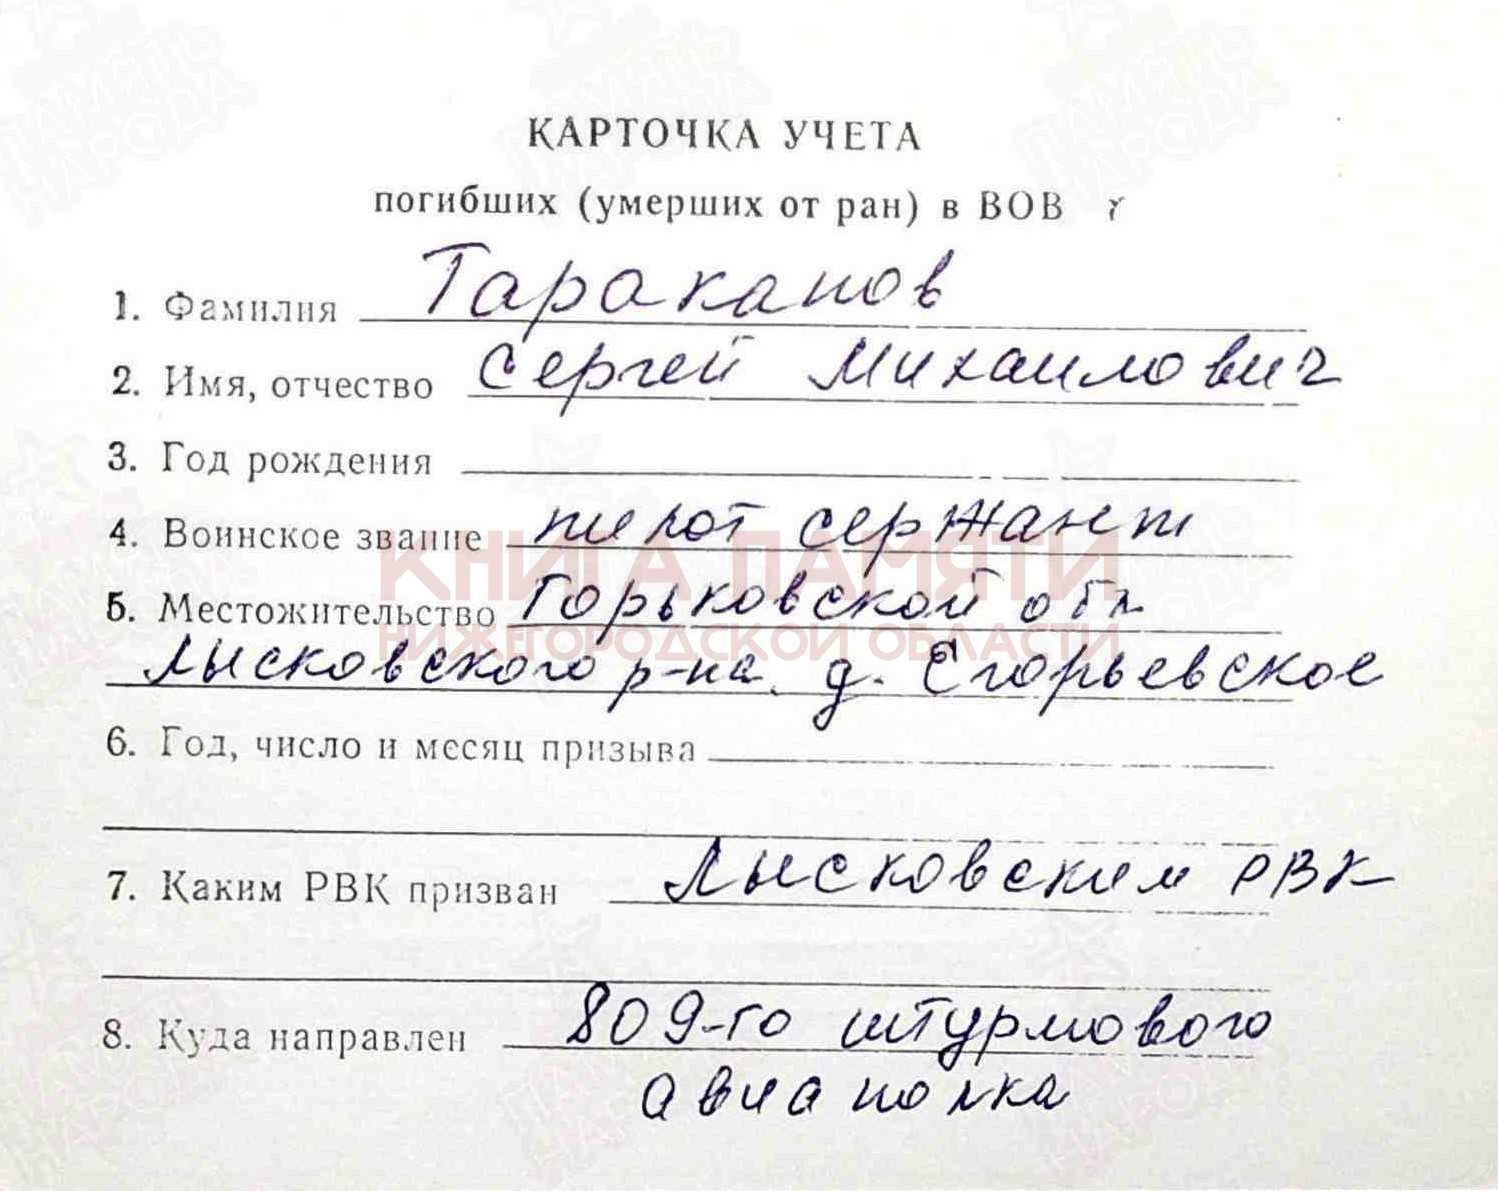 КАРТОЧКА УЧЕТА
погибших (умерших от ран) в ВОВ
1. Фамилия Тараканов
2. Имя, отчество Сергей Михаилович
3. Год рождения
4. Воинское звание пилот сержант
КНИГА ПАМЯТИ
5. Местожительство Горьковской обл
НИЖЕГОРОДСКОЙ ОБЛАСТИ
Лысковского р-на д. Егорьевское
6. Год, число и месяц призыва
7. Каким РВК призван Лысковским РВК
8. Куда направлен 809-го штурмового
авиаполка